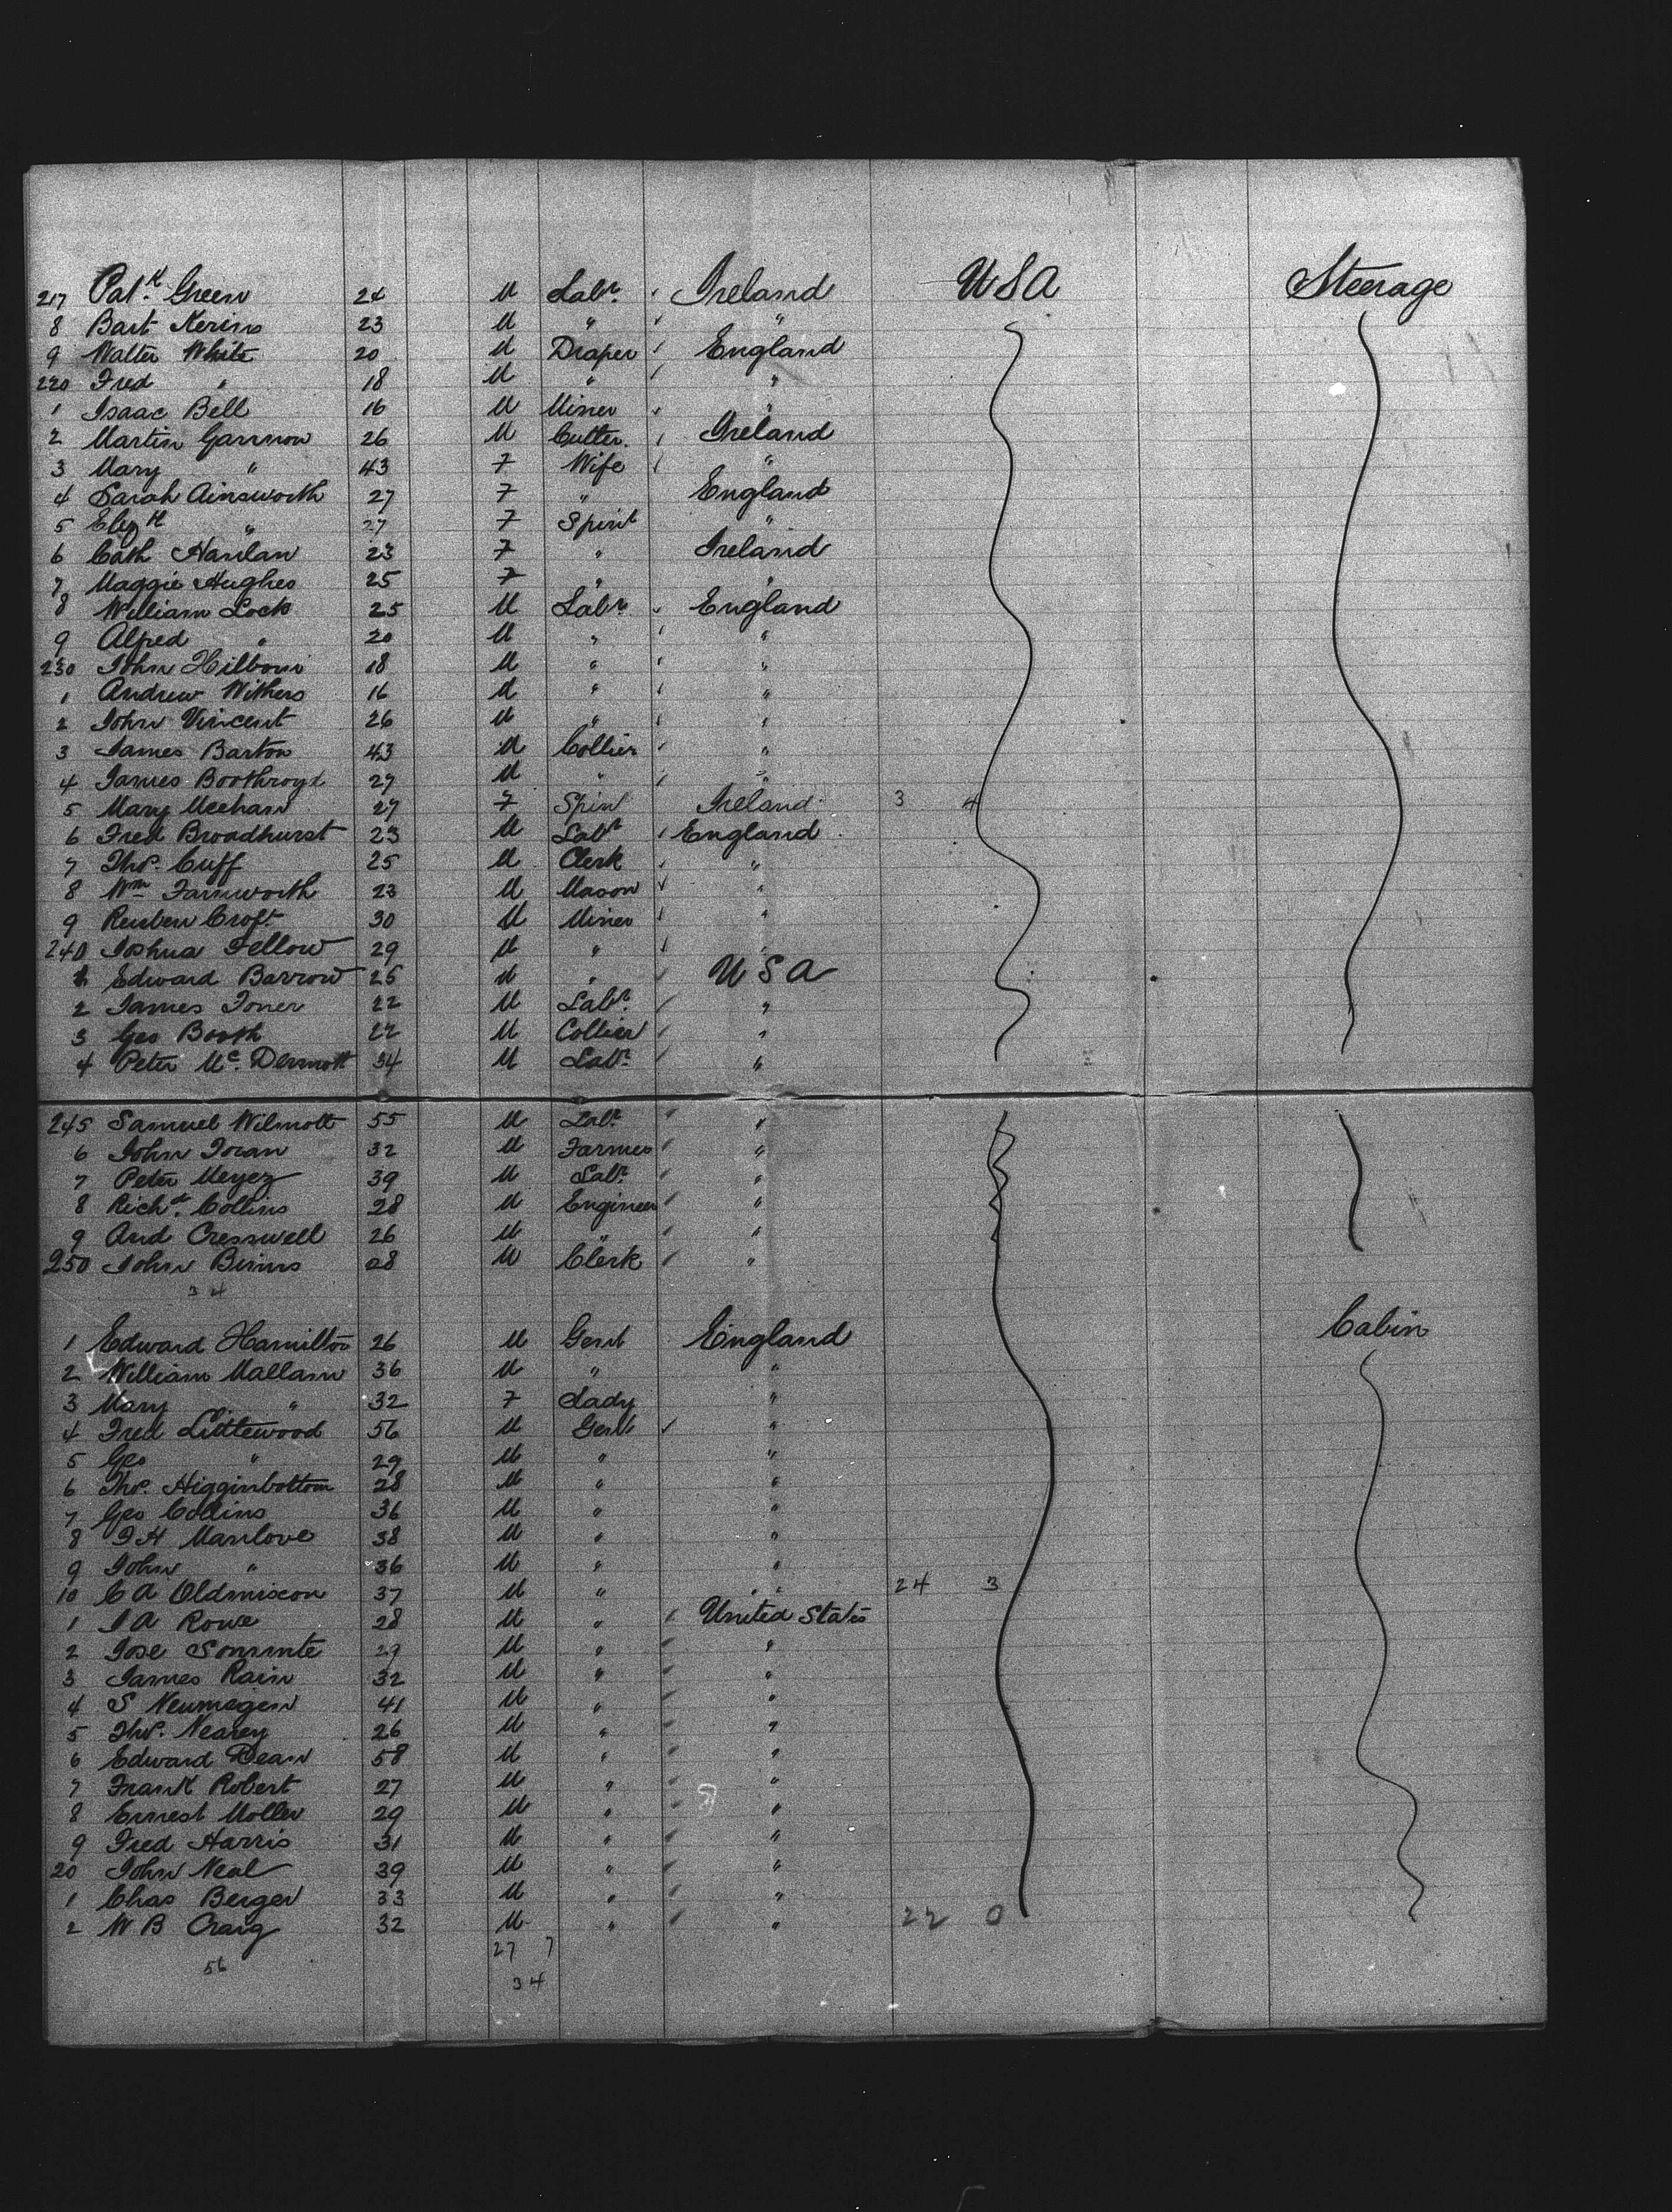 217 Patk Green 24 M Labr. Ireland USA Steerage
8 Bart Kerins 23 M " "
9 Walter White 20 M Draper England
220 Fred " 18 M " "
1 Isaac Bell 16 M Miner "
2 Martin Gannon 26 M Cutter. Ireland
3 Mary " 43 F Wife "
4 Sarah Ainsworth 27 F " England
5 Elizth " 27 F Spinr "
6 Cath Hanlan 23 F " Ireland
7 Maggie Hughes 25 F " "
8 William Lock 25 M Labr. England
9 Alfred " 20 M " "
230 John 18 M " "
1 Andrew Withers 16 M " "
2 John Vincent 26 M " "
3 James Barton 43 M Collier "
4 James Boothroyd 27 M " "
5 Mary Meehan 27 F Spin Ireland 3 4
6 Fred Broadhurst 23 M Labr England
7 Thos. Cuff 25 M Clerk "
8 Wm Farnworth 23 M Mason "
9 Reuben Croft 30 M Miner "
240 Joshua Fellow 29 M " "
1 Edward Barrow 25 M " USA
2 James Toner 22 M Labr. "
3 Geo Booth 22 M Collier "
4 Peter Mc. Dermott 34 M Labr. "
245 Samuel Wilmott 55 M Labr. "
6 John Toran 32 M Farmer "
7 Peter Meyez 39 M Labr. "
8 Richd. Collins 28 M Engineer "
9 And Cresswell 26 M " "
250 John Binns 28 M Clerk "
34
1 Edward Hamilton 26 M Gent England Cabin
2 William Mallam 36 M " "
3 Mary " 32 F Lady "
4 Fred Littlewood 56 M Gent "
5 Geo " 29 M " "
6 Thos. Higginbottom 28 M " "
7 Geo Collins 36 M " "
8 J H Manlove 38 M " "
9 John " 36 M " "
10 C A Oldmixon 37 M " " 24 3
1 J A Rowe 28 M " United States
2 Jose 29 M " "
3 James Rain 32 M " "
4 S Neumegen 41 M " "
5 Thos. Nearey 26 M " "
6 Edward Dean 58 M " "
7 Frank Robert 27 M " "
8 Ernest Moller 29 M " "
9 Fred Harris 31 M " "
20 John Neal 39 M " "
1 Chas Berger 33 M " "
2 W B Craig 32 M " " 22 0
27 7
56
34